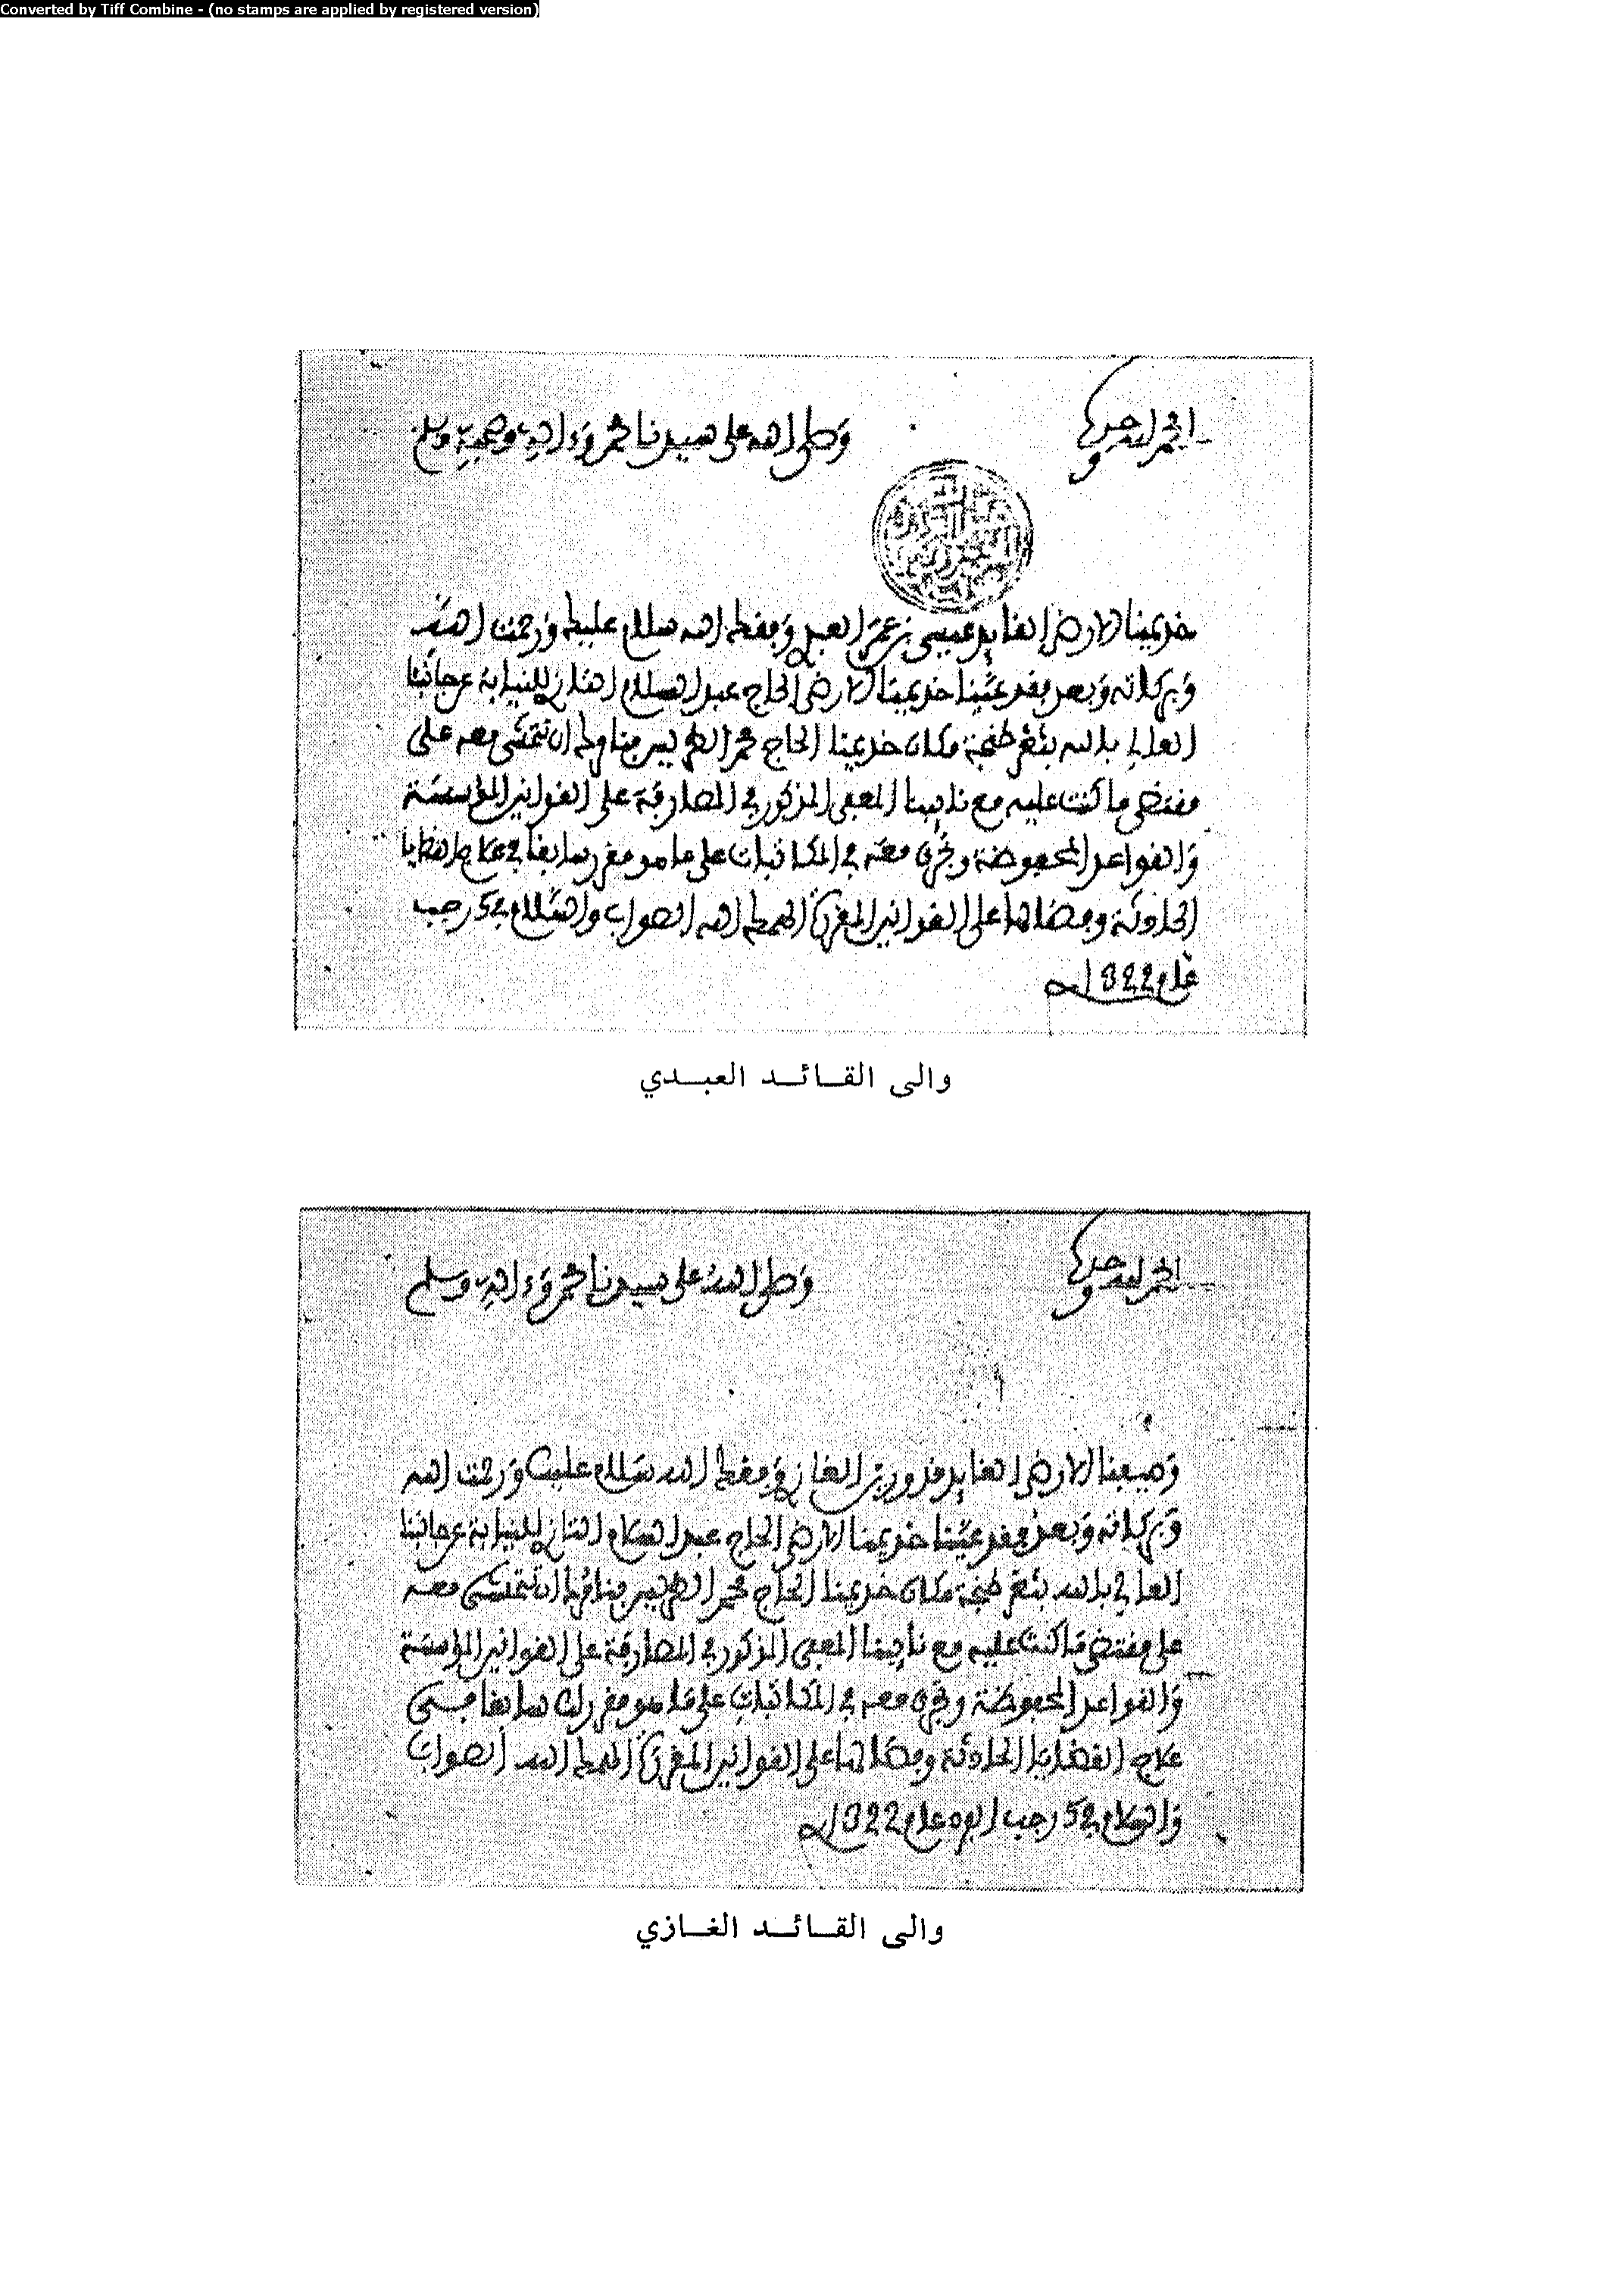 Converted by Tiff Combine - (no stamps are applied by registered version)
الحمد لله وحده
وصلى الله على سيدنا محمد وءاله وصحبه وسلم
خديمنا الارضى القايد عيسى بن عمر العبدي وفقك الله سلام عليك ورحمت الله
وبركاته وبعد فقد عينا خديمنا الارضى الحاج عبد السلام التازي للنيابة عن جانبنا
العالي بالله بثغر طنجة مكان خديمنا الحاج محمد الطريس منا ولك ان تتمشى معه على
مقتضى ما كنت عليه مع نايبنا المعفى المذكور في المصارفة على القوانين المؤسسة
والقواعد المحفوظة وتجري معه في المكاتبات على ما هو مقرر سابقا في علاج القضايا
الحادثة وفصالها على القوانين المقررة الهمك الله الصواب والسلام في 25 رجب
عام 1322
والى القائد العبدي
الحمد لله وحده
وصلى الله على سيدنا محمد وءاله وسلم
وصيفنا الارضى القايد فدور بن الغازي وفقك الله سلام عليك ورحمت الله
وبركاته وبعد فقد عينا خديمنا الارضى الحاج عبد السلام التازي للنيابة عن جانبنا
العالي بالله بثغر طنجة مكان خديمنا الحاج محمد الطريس ان تتمشى معه
على مقتضى ما كنت عليه مع نايبنا المعفى المذكور في المصارفة على القوانين المؤسسة
والقواعد المحفوظة وتجري معه في المكاتبات على ما هو مقرر لك سابقا في
علاج القضايا الحادثة وفصالها على القوانين المقررة الهمك الله الصواب
والسلام في 25 رجب الفرد عام 1322
والى القائد الغازي